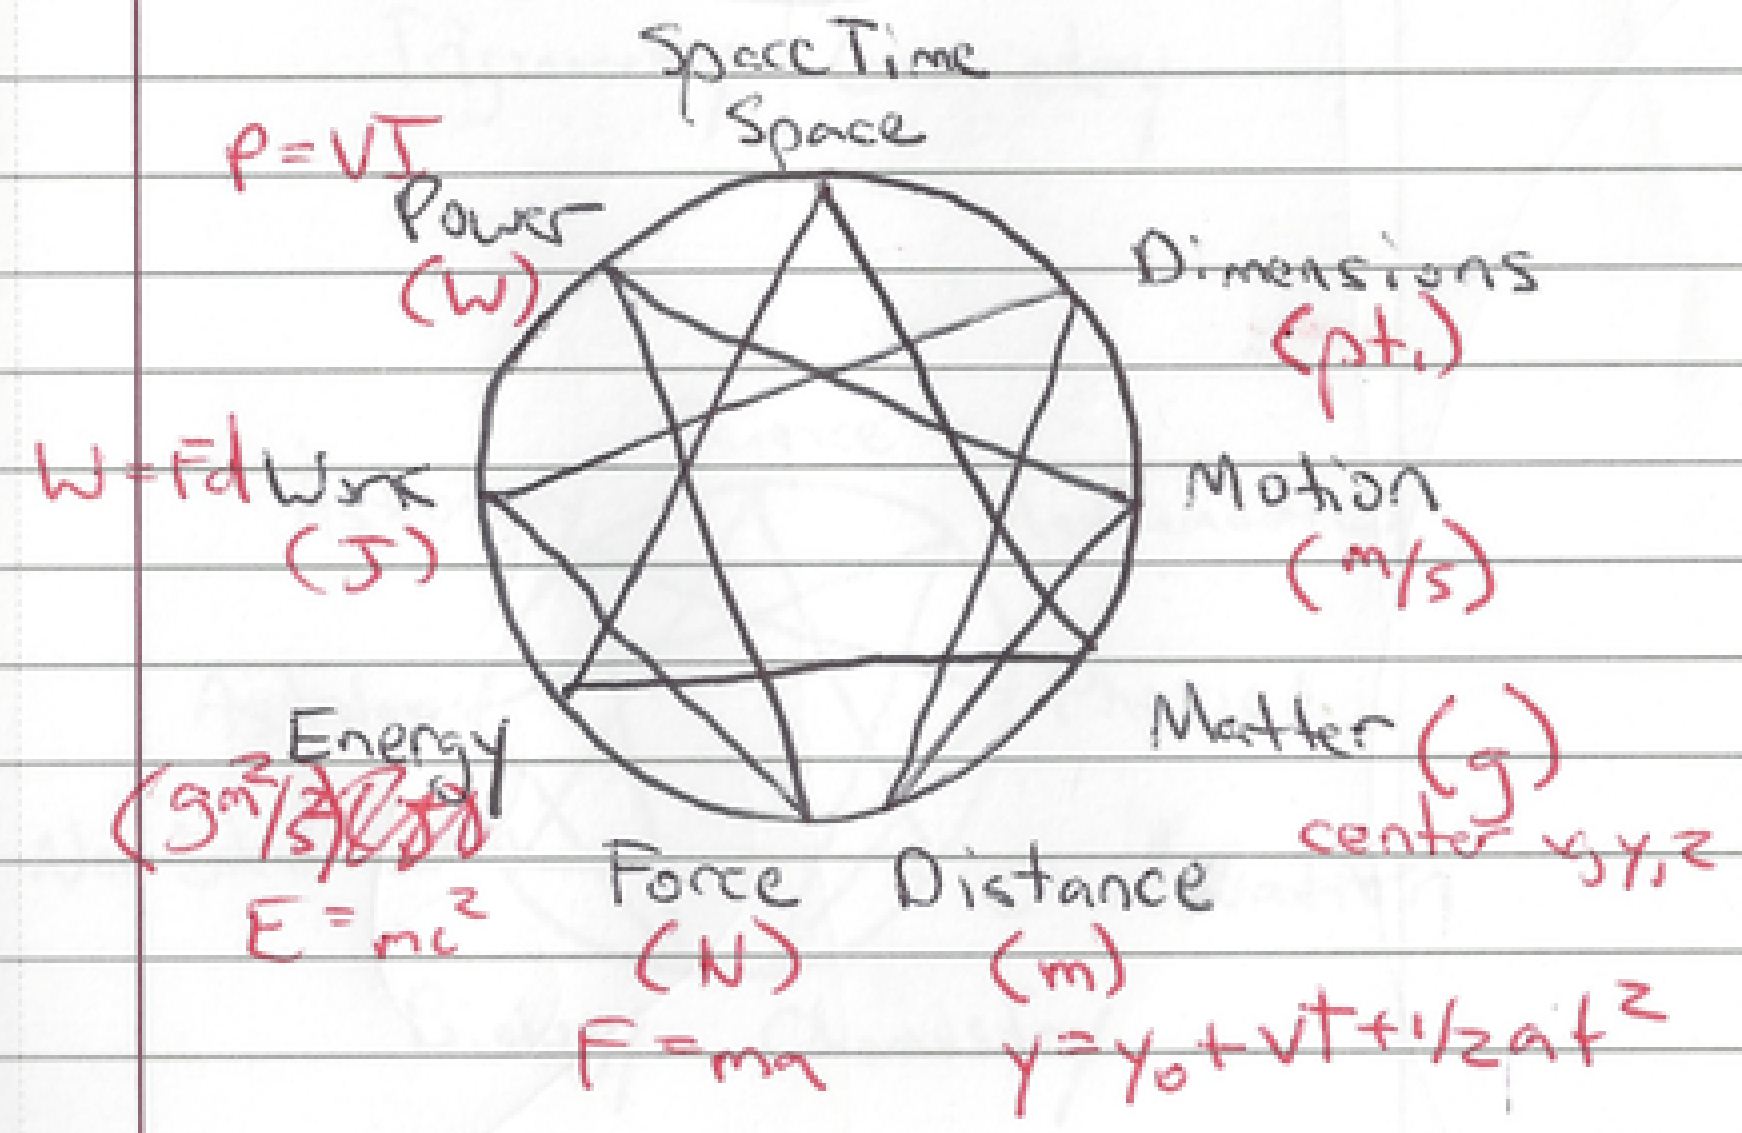 SpaceTime
Space
P = VI
Power
(W)
Dimensions
(pt.)
W = Fd Work
(J)
Motion
(m/s)
Energy
(gm²/s²)
E = mc²
Matter (g)
center x, y, z
Force
(N)
F = ma
Distance
(m)
y = y₀ + vt + 1/2 at²